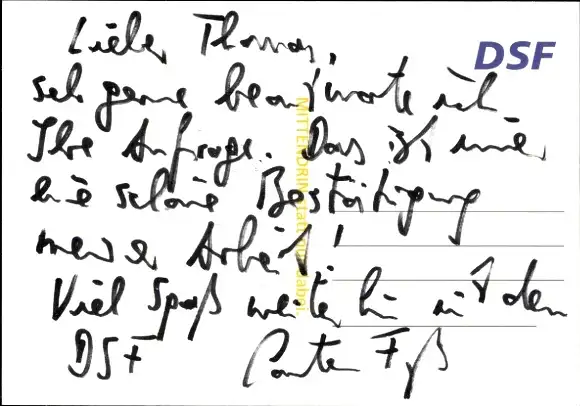 Lieber Thomas,
DSF
sehr gerne beantworte ich
Ihre Anfrage. Das ist immer
eine schöne Bestätigung
meiner Arbeit!
Viel Spaß weiterhin mit dem
DSF Carsten